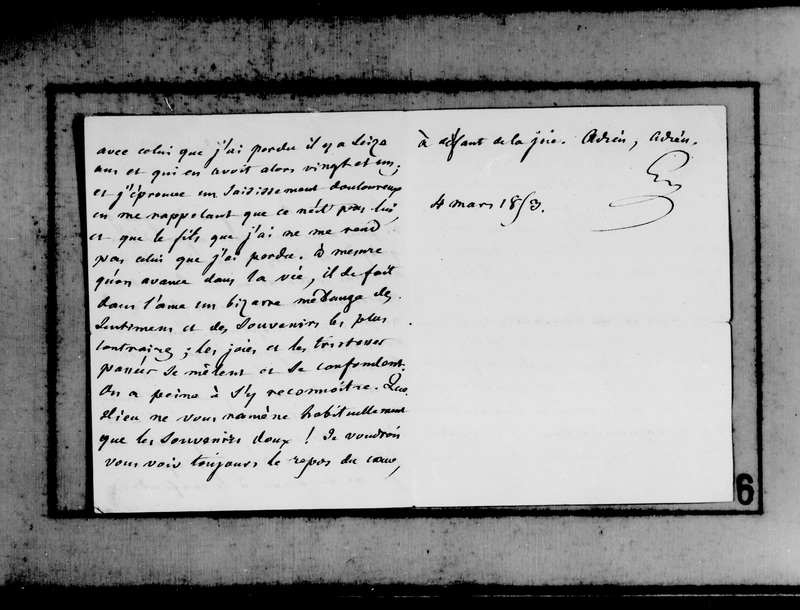 avec celui que j'ai perdu il y a seize
ans et qui en avoit alors vingt et un;
et j'éprouve un saisissement douloureux
en me rappelant que ce n'est pas lui,
et que le fils que j'ai ne me rend
pas celui que j'ai perdu. à mesure
qu'on avance dans la vie, il se fait
dans l'ame un bizarre mélange des
sentimens et des souvenirs les plus
contraires; les joies et les tristesses
passées se mêlent et se confondent.
On a peine à s'y reconnoitre. Que
Dieu ne vous ramène habituellement
que les souvenirs doux! Je voudrois
vous voir toujours le repos du cœur,
à défaut de la joie. Adieu, adieu.
4 mars 1853.
6